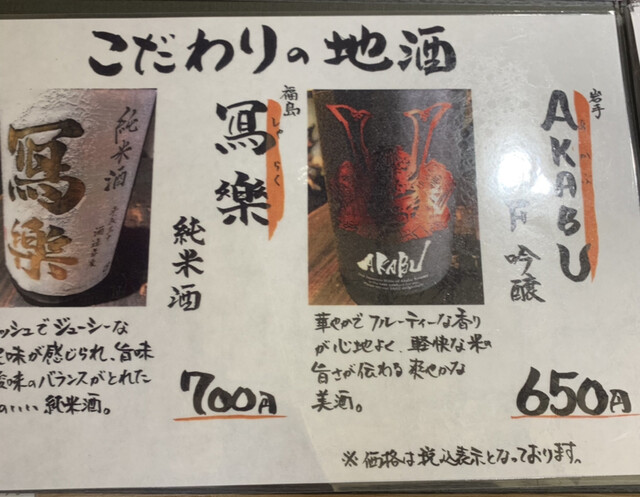 こだわりの地酒
福島
しゃらく
冩樂
純米酒
冩樂
純米酒
ッシュでジューシーな
味が感じられ、旨味
味のバランスがとれた
のいい純米酒。
700円
岩手
AKABU
吟醸
AKABU
華やかでフルーティーな香り
が心地よく、軽快な米の
旨さが伝わる爽やかな
美酒。
650円
※価格は税込表示となっております。